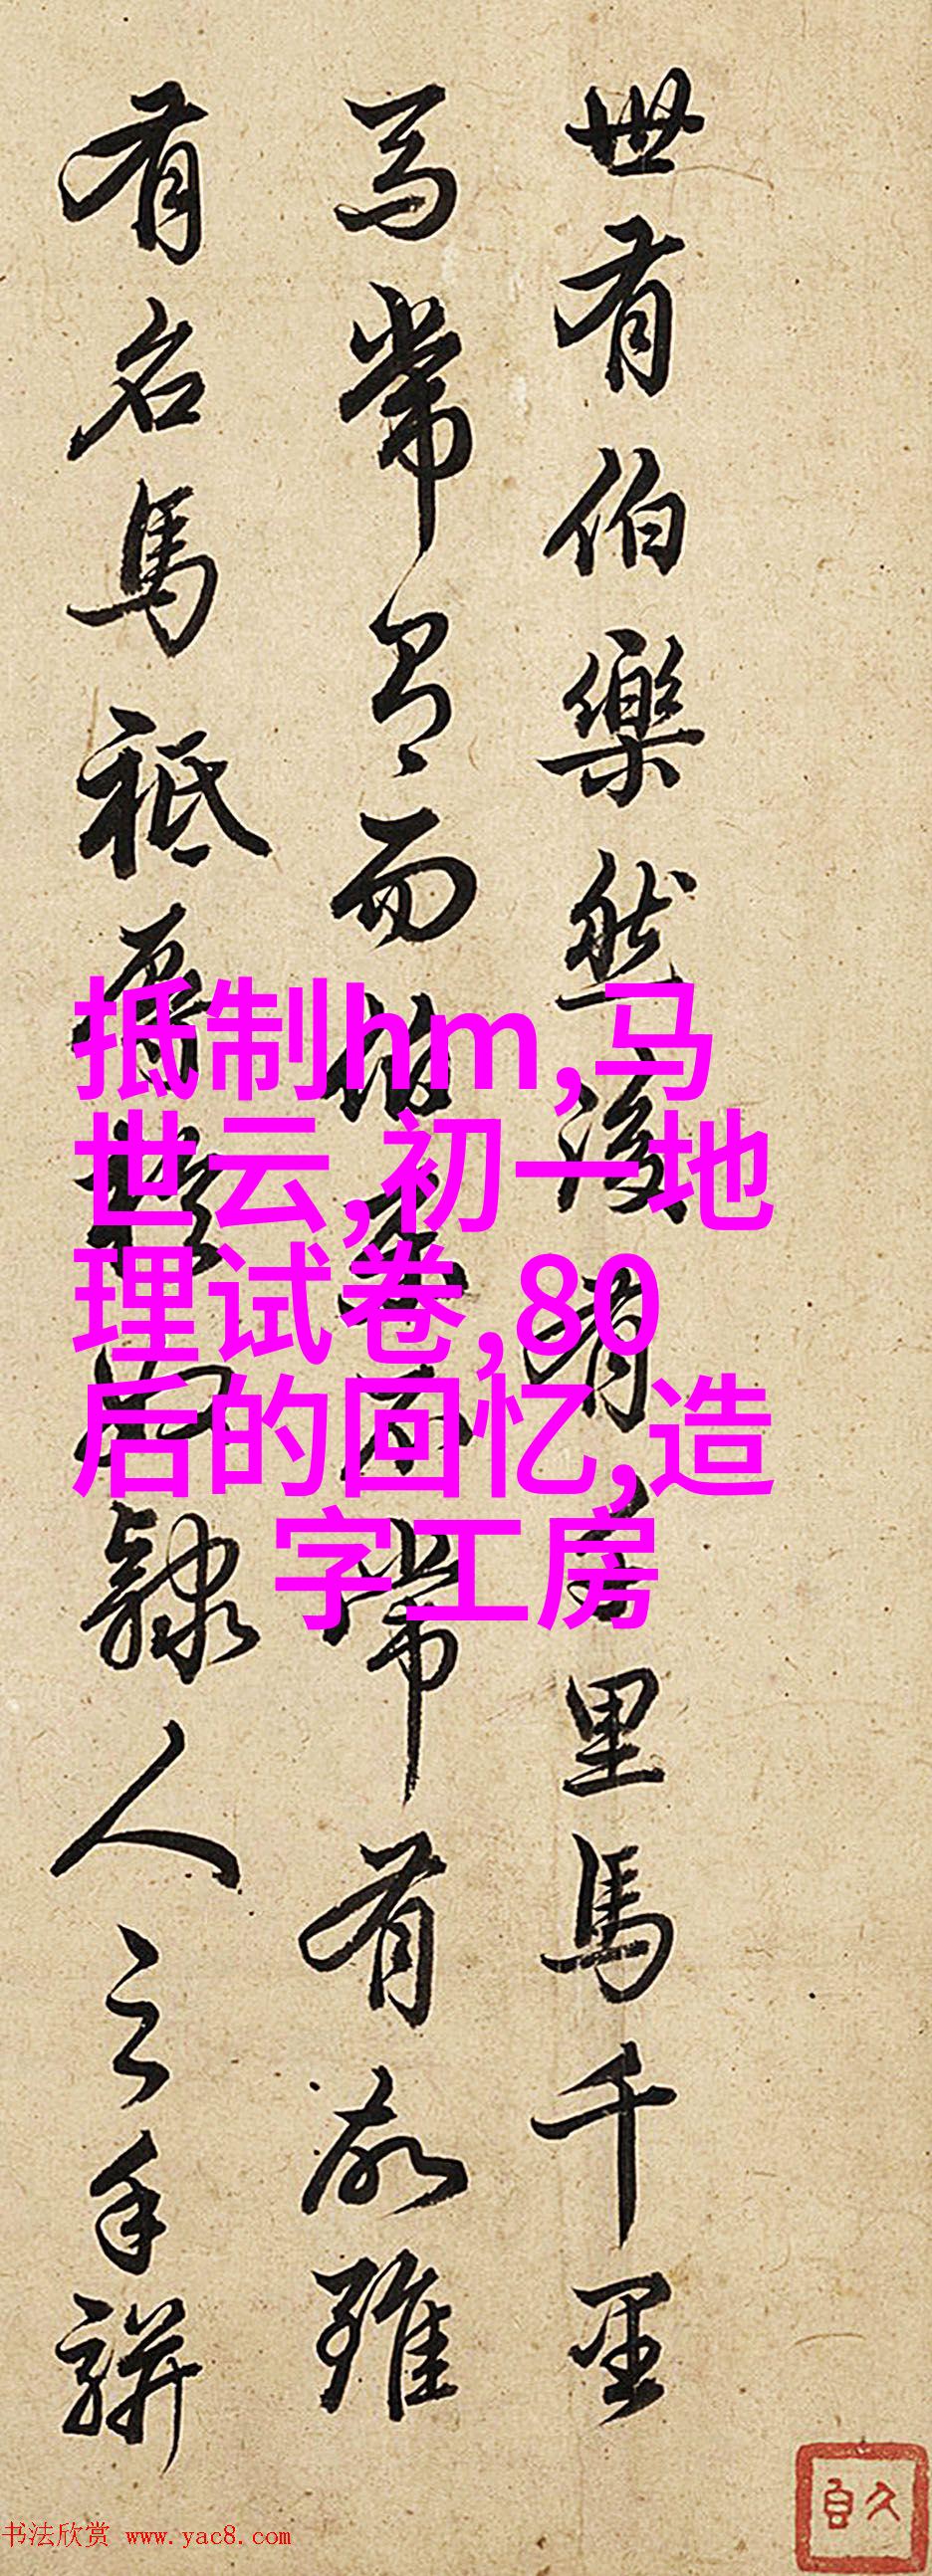 世有伯樂然後有千里馬千里
馬常有而伯樂不常有故雖
有名馬祗辱於奴隸人之手駢
抵制hm,马
世云,初一地
理试卷,80
后的回忆,造
字工房
书法欣赏 www.yac8.com